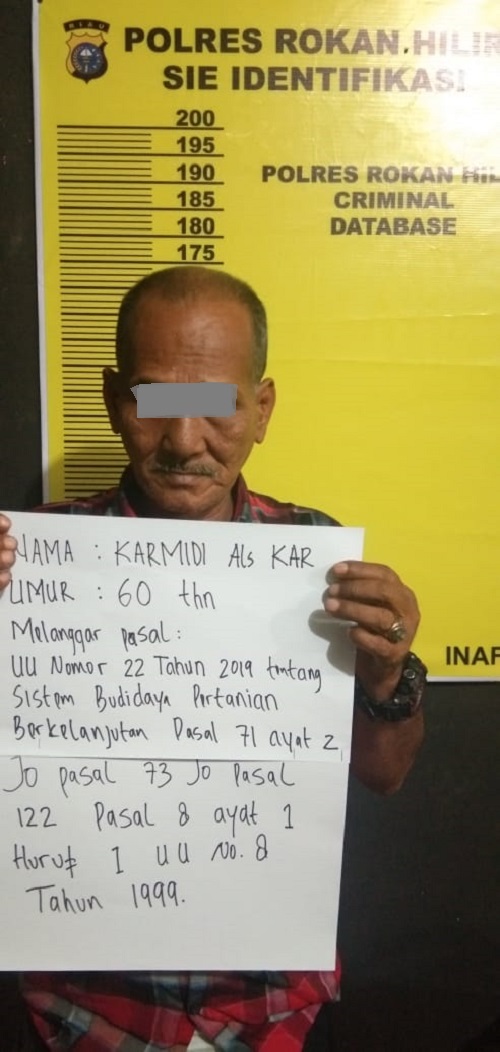 RIAU
POLRES ROKAN HILIR
SIE IDENTIFIKASI
200
195
190
185
180
175
POLRES ROKAN HIL
CRIMINAL
DATABASE
NAMA : KARMIDI Als KAR
UMUR : 60 thn
Melanggar pasal :
UU Nomor 22 Tahun 2019 tentang
Sistem Budidaya Pertanian
Berkelanjutan Pasal 71 ayat 2
Jo pasal 73 Jo Pasal
122 Pasal 8 ayat 1
Huruf 1 UU No. 8
Tahun 1999.
INAF